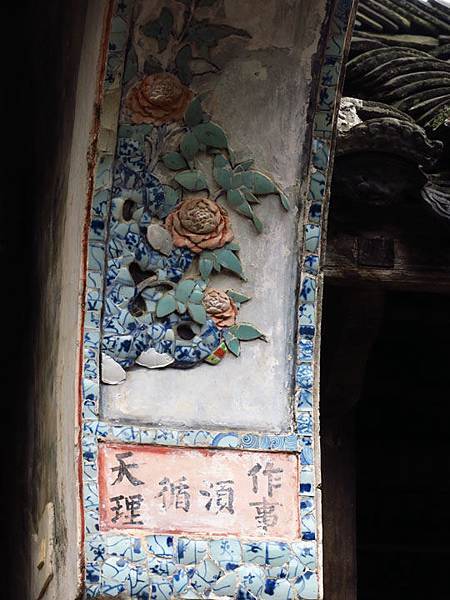 作事須循天理